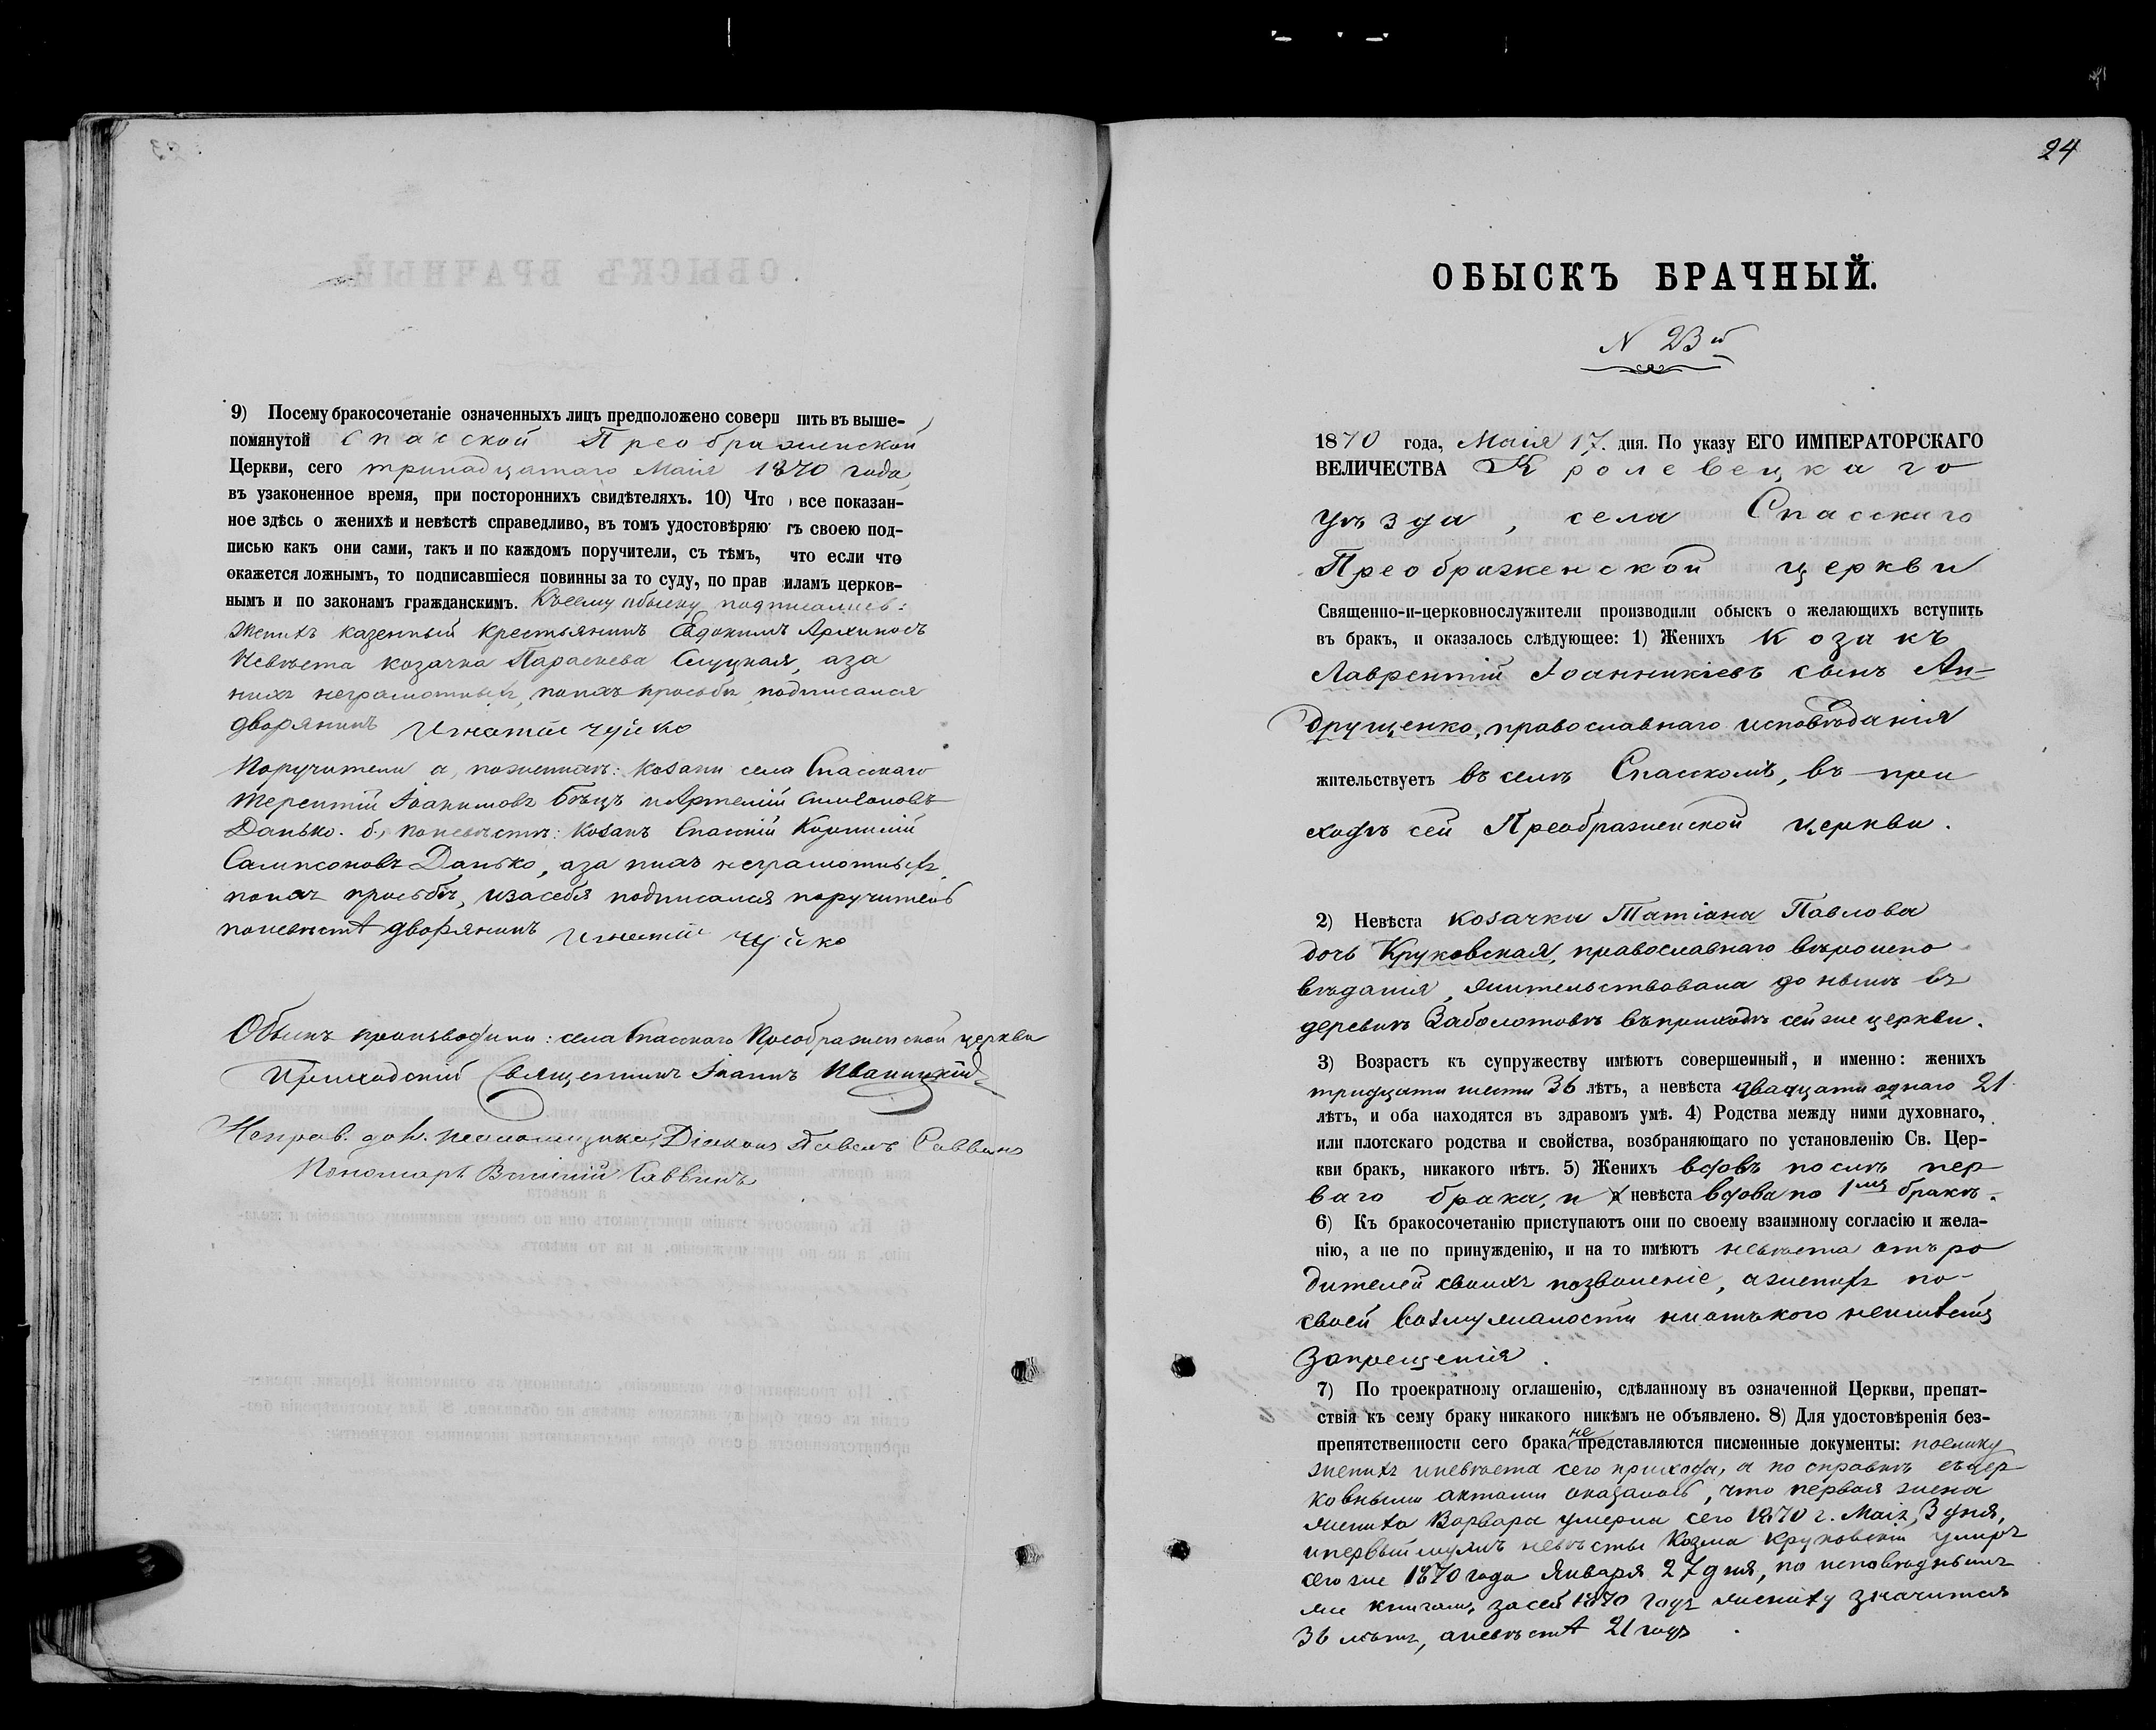 9) Посему бракосочетаніе означенныхъ лицъ предположено соверш ить въ выше-
помянутой Спасской Преображенской
Церкви, сего тринадцатаго Маія 1870 года,
въ узаконенное время, при постороннихъ свидѣтеляхъ. 10) Что все показан-
ное здѣсь о женихѣ и невѣстѣ справедливо, въ томъ удостовѣряютъ своею под-
писью какъ они сами, такъ и по каждомъ поручители, съ тѣмъ, что если что
окажется ложнымъ, то подписавшіеся повинны за то суду, по правиламъ церков-
нымъ и по законамъ гражданскимъ. Къ сему обыску подписались:
Женихъ казенный крестьянинъ Евдокимъ Архиповъ
Невѣста козачка Параскева Слуцкая, а за
нихъ неграмотныхъ, по ихъ просьбѣ, подписался
дворянинъ Игнатій Чуйко
Поручители а, по женихѣ: козаки села Спасскаго
Терентій Іоакимовъ Бѣцъ и Артемій Симеоновъ
Данько. б, по невѣстѣ: козакъ Спасскій Корнилій
Сампсоновъ Данько, а за нихъ неграмотныхъ
по ихъ просьбѣ, и за себя подписался поручитель
по невѣстѣ дворянинъ Игнатій Чуйко
Обыскъ производили: села Спасскаго Преображенской церкви
Приходскій Священникъ Іоаннъ Иваницкій
Исправ. долж. псаломщика, Діаконъ Павелъ Саввинъ
Пономарь Василій Саввинъ
24
ОБЫСКЪ БРАЧНЫЙ.
N 23й
1870 года, Маія 17. дня. По указу ЕГО ИМПЕРАТОРСКАГО
ВЕЛИЧЕСТВА Кролевецкаго
уѣзда, села Спасскаго
Преображенской церкви
Священно-и-церковнослужители производили обыскъ о желающихъ вступить
въ бракъ, и оказалось слѣдующее: 1) Женихъ козакъ
Лаврентій Іоанникіевъ сынъ Ан-
друщенко, православнаго исповѣданія
жительствуетъ въ селѣ Спасскомъ, въ при
ходѣ сей Преображенской церкви.
2) Невѣста козачка Татіана Павлова
дочь Круковская, православнаго вѣроиспо
вѣданія, жительствовала до нынѣ въ
деревнѣ Заболотовѣ въ приходѣ сей же церкви.
3) Возрастъ къ супружеству имѣютъ совершенный, и именно: женихъ
тридцати шести 36 лѣтъ, а невѣста двадцати одного 21
лѣтъ, и оба находятся въ здравомъ умѣ. 4) Родства между ними духовнаго,
или плотскаго родства и свойства, возбраняющаго по установленію Св. Цер-
кви бракъ, никакого нѣтъ. 5) Женихъ вдовъ послѣ пер
ваго брака, и а невѣста вдова по 1мъ бракѣ.
6) Къ бракосочетанію приступаютъ они по своему взаимному согласію и жела-
нію, а не по принужденію, и на то имѣютъ невѣста отъ ро
дителей своихъ позволеніе, а женихъ по
своей возмужалости ни отъ кого не имѣетъ
запрещенія.
7) По троекратному оглашенію, сдѣланному въ означенной Церкви, препят-
ствія къ сему браку никакого никѣмъ не объявлено. 8) Для удостовѣренія без-
препятственности сего брака не представляются писменные документы: поелику
женихъ и невѣста сего прихода, а по справкѣ съ цер
ковными актами оказалось, что первая жена
жениха Варвара умерла сего 1870 г. Маія 3 дня,
и первый мужъ невѣсты Козма Круковскій умеръ
сего же 1870 года Января 27 дня, по исповѣднымъ
же книгамъ за сей 1870 годъ жениху значится
36 лѣтъ, а невѣстѣ 21 годъ.